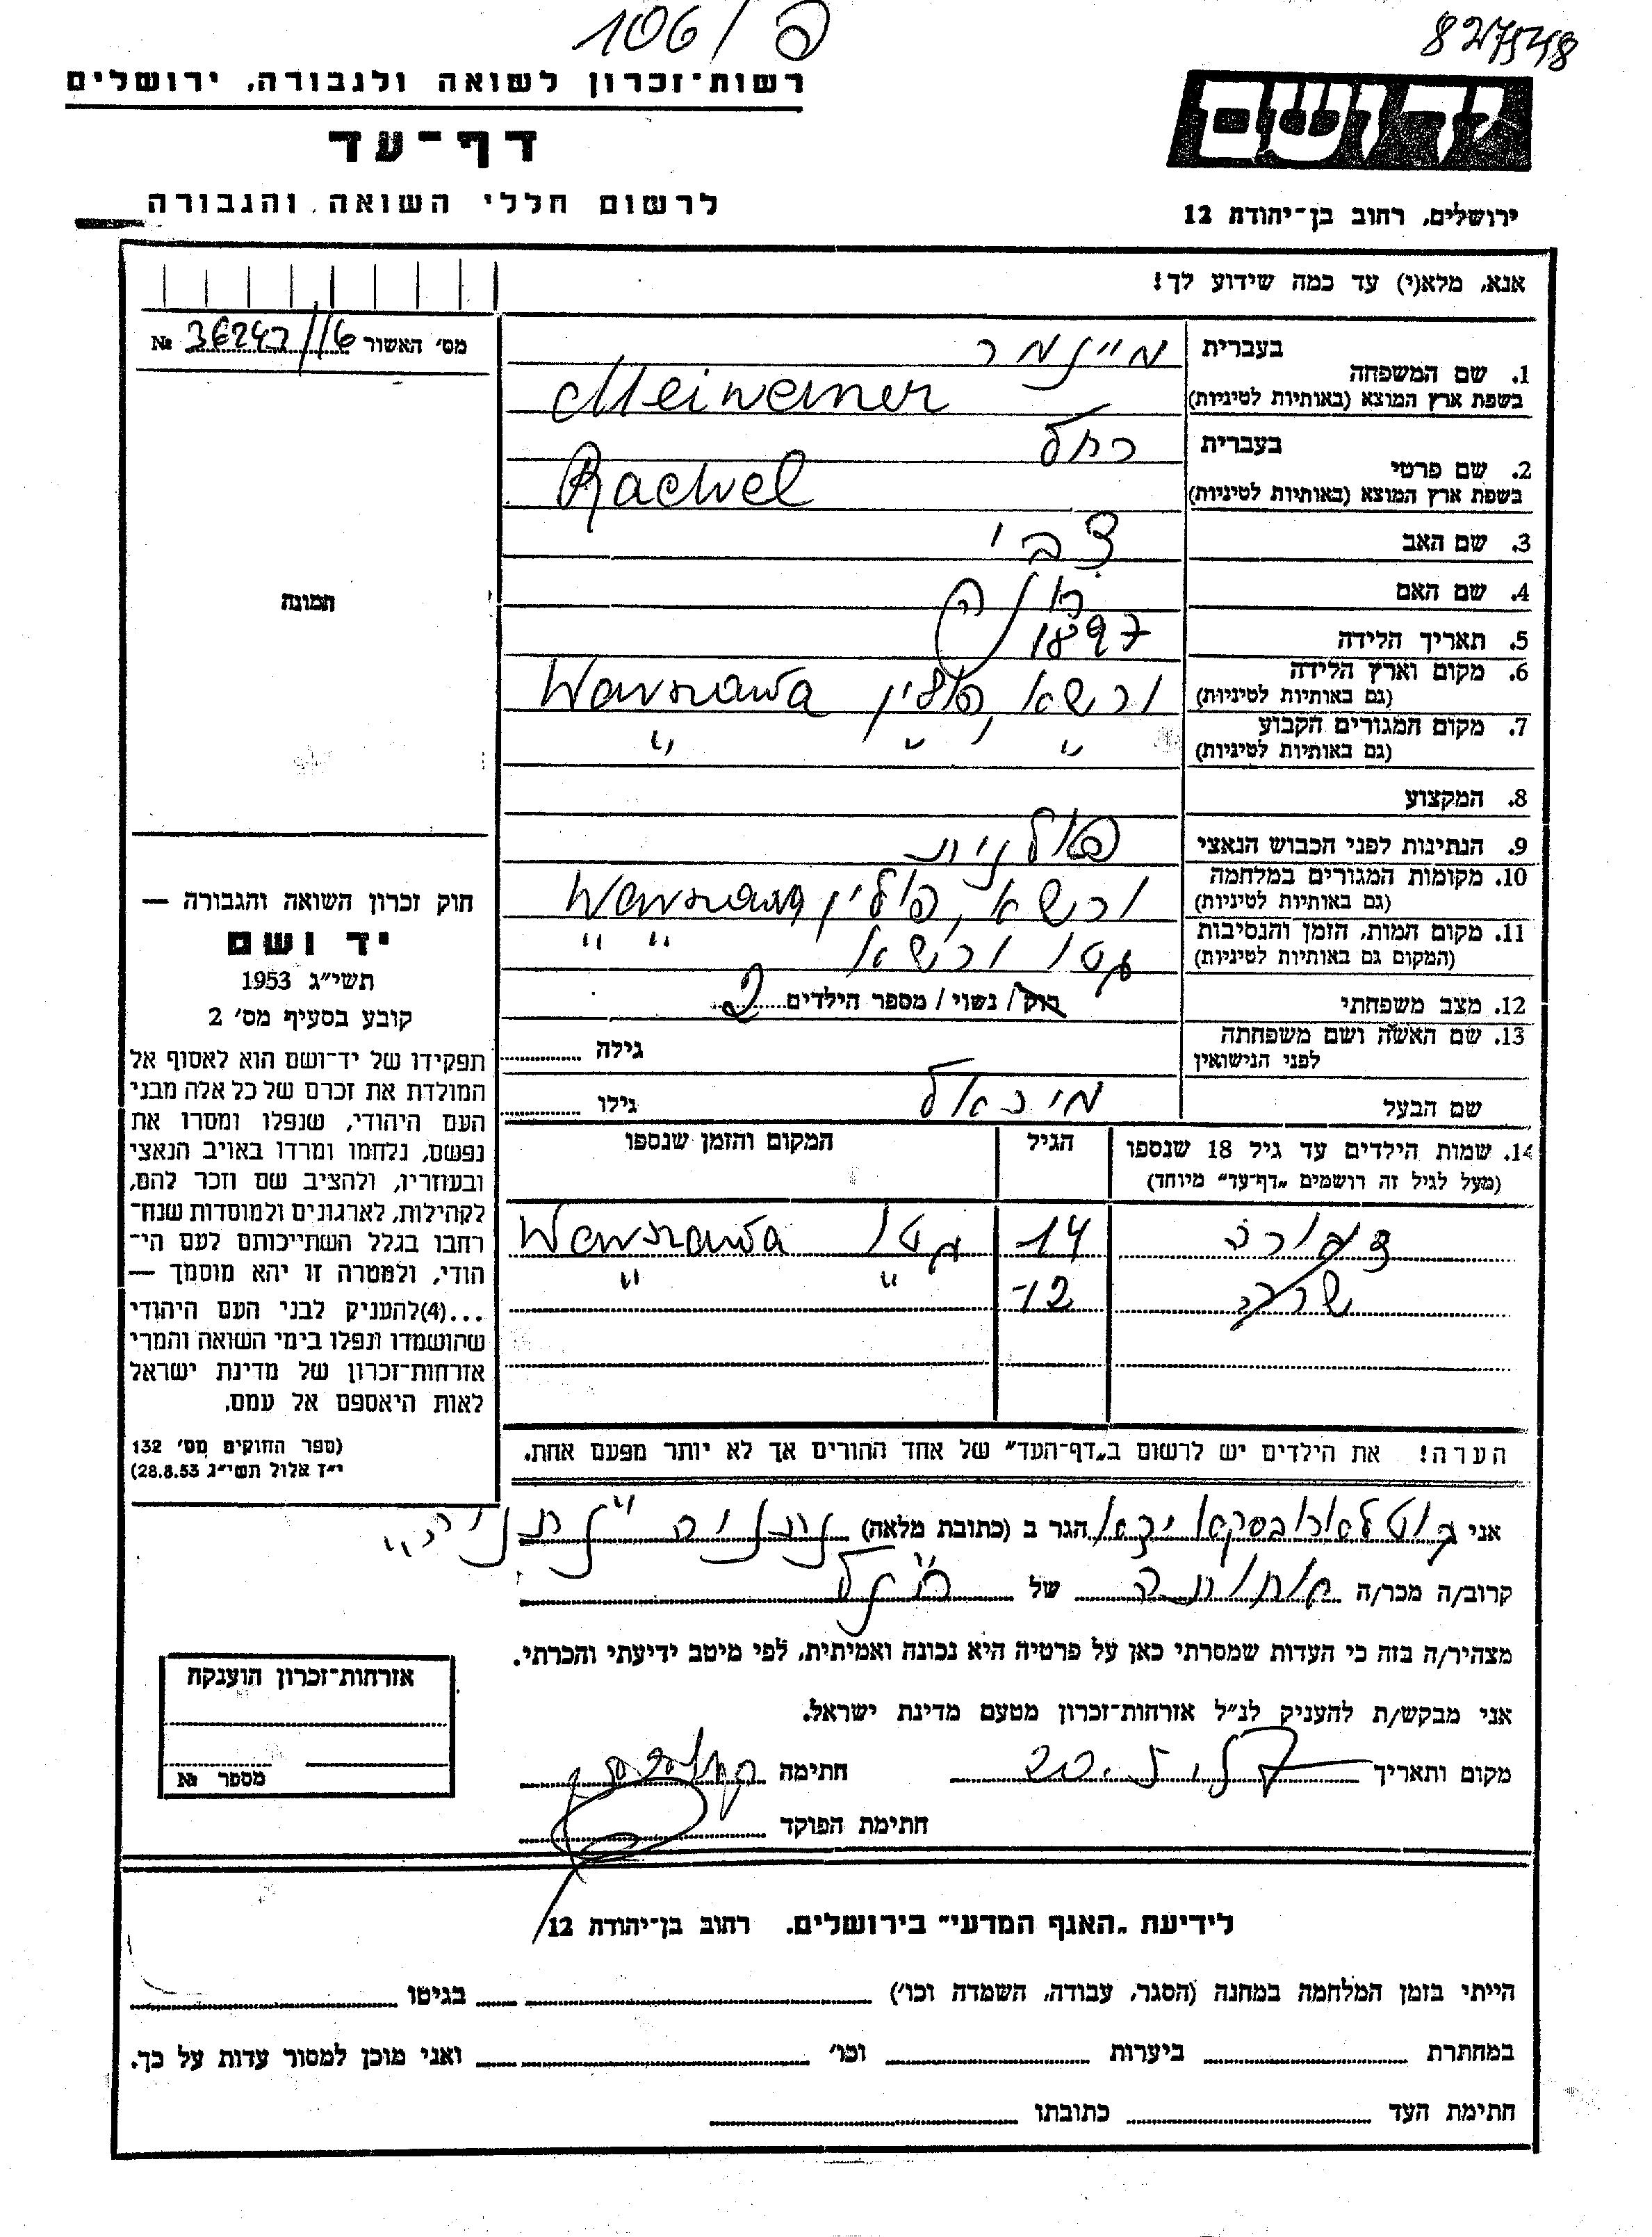 106/פ
827548
רשות־זכרון לשואה ולגבורה, ירושלים
דף־עד
לרשום חללי השואה והגבורה
יד ושם
ירושלים, רחוב בן־יהודה 12
אנא, מלא(י) עד כמה שידוע לך!
מס׳ האשור 36247/16 №
1. שם המשפחה
בעברית
בשפת ארץ המוצא (באותיות לטיניות)
Meinemer
2. שם פרטי
בעברית רחל
בשפת ארץ המוצא (באותיות לטיניות) Rachel
3. שם האב צבי
4. שם האם
5. תאריך הלידה 1897
6. מקום וארץ הלידה (גם באותיות לטיניות) ורשא, פולין Warszawa
7. מקום המגורים הקבוע (גם באותיות לטיניות) " " "
8. המקצוע
9. הנתינות לפני הכבוש הנאצי פולנית
10. מקומות המגורים במלחמה (גם באותיות לטיניות) ורשא, פולין Warszawa
11. מקום המות, הזמן והנסיבות (המקום גם באותיות לטיניות) גטו ורשא " "
12. מצב משפחתי רוק/ נשוי / מספר הילדים 2
13. שם האשה ושם משפחתה לפני הנישואין
גילה
שם הבעל מיכאל
גילו
14. שמות הילדים עד גיל 18 שנספו (מעל לגיל זה רושמים „דף־עד" מיוחד)
הגיל
המקום והזמן שנספו
צפורה 14 גטו Warszawa
שרה 12 " "
הערה! את הילדים יש לרשום ב„דף־העד" של אחד ההורים אך לא יותר מפעם אחת.
תמונה
חוק זכרון השואה והגבורה —
יד ושם
תשי״ג 1953
קובע בסעיף מס׳ 2
תפקידו של יד־ושם הוא לאסוף אל
המולדת את זכרם של כל אלה מבני
העם היהודי, שנפלו ומסרו את
נפשם, נלחמו ומרדו באויב הנאצי
ובעוזריו, ולהציב שם וזכר להם,
לקהילות, לארגונים ולמוסדות שנח־
רחבו בגלל השתייכותם לעם הי־
הודי, ולמטרה זו יהא מוסמך —
...(4)להעניק לבני העם היהודי
שהושמדו ונפלו בימי השואה והמרי
אזרחות־זכרון של מדינת ישראל
לאות היאספם אל עמם.
(ספר החוקים מס׳ 132
י״ז אלול תשי״ג 28.8.53)
אני הגר ב (כתובת מלאה) נתניה
קרוב/ה מכר/ה של
מצהיר/ה בזה כי העדות שמסרתי כאן על פרטיה היא נכונה ואמיתית, לפי מיטב ידיעתי והכרתי.
אני מבקש/ת להעניק לנ״ל אזרחות־זכרון מטעם מדינת ישראל.
מקום ותאריך
חתימה
חתימת הפוקד
אזרחות־זכרון הוענקה
מספר №
לידיעת „האגף המדעי" בירושלים. רחוב בן־יהודה 12
הייתי בזמן המלחמה במחנה (הסגר, עבודה, השמדה וכו׳) בגיטו
במחתרת ביערות וכו׳ ואני מוכן למסור עדות על כך.
חתימת העד כתובתו